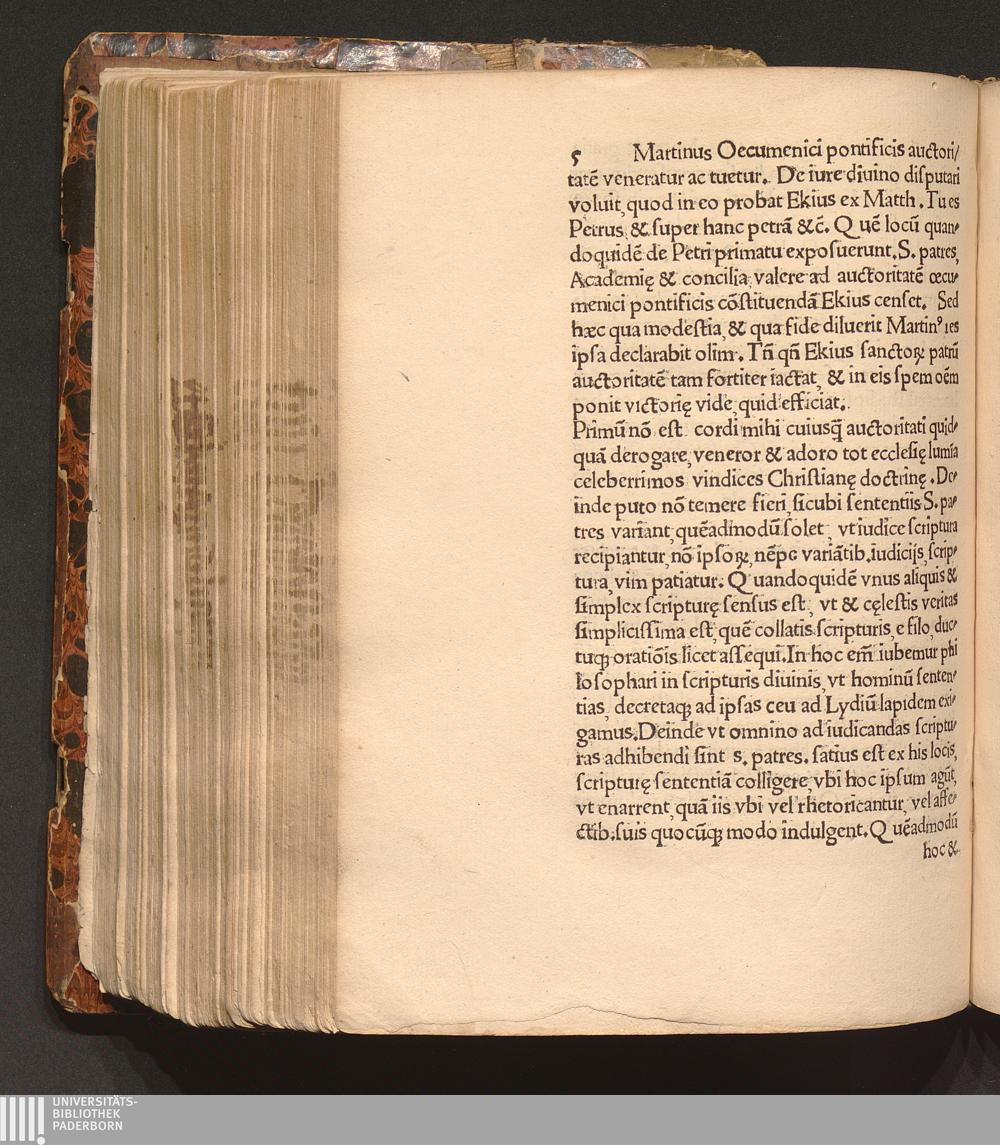 5 Martinus Oecumenici pontificis auctori/
tatē veneratur ac tuetur. De iure diuino diſputari
voluit, quod in eo probat Ekius ex Matth. Tu es
Petrus, & ſuper hanc petrā &c̄. Quē locū quan⸗
doquidē de Petri primatu expoſuerunt. S. patres,
Academię & concilia, valere ad auctoritatē œcu⸗
menici pontificis cōſtituendā Ekius cenſet. Sed
hæc qua modeſtia, & qua fide diluerit Martinꝰ res
ipſa declarabit olim. Tñ qñ Ekius ſanctoꝝ patrū
auctoritatē tam fortiter iactat, & in eis ſpem oēm
ponit victorię vide, quid efficiat.
Primū nō eſt cordi mihi cuiusq̄ auctoritati quid⸗
quā derogare, veneror & adoro tot eccleſię lumīa
celeberrimos vindices Chriſtianę doctrinę. De⸗
inde puto nō temere fieri, ſicubi ſententiis S. pa⸗
tres variant, quēadmodū ſolet, vt iudice ſcriptura
recipiantur, nō ipſoꝝ, nēpe variātib. iudicijs, ſcrip⸗
tura, vim patiatur. Quandoquidē vnus aliquis &
ſimplex ſcripturę ſenſus eſt, vt & cęleſtis veritas
ſimpliciſſima eſt, quē collatis ſcripturis, e filo, duc⸗
tuqꝫ oratiōis licet aſſequi. In hoc em̄ iubemur phi
loſophari in ſcripturis diuinis, vt hominū ſenten⸗
tias, decretaqꝫ ad ipſas ceu ad Lydiū lapidem exi⸗
gamus. Deinde vt omnino ad iudicandas ſcriptu⸗
ras adhibendi ſint S. patres. ſatius eſt ex his locis,
ſcripturę ſententiā colligere, vbi hoc ipſum agūt,
vt enarrent, quā iis vbi vel rhetoricantur, vel affe⸗
ctib. ſuis quocūqꝫ modo indulgent. Quēadmodū
hoc &
UNIVERSITÄTS-
BIBLIOTHEK
PADERBORN